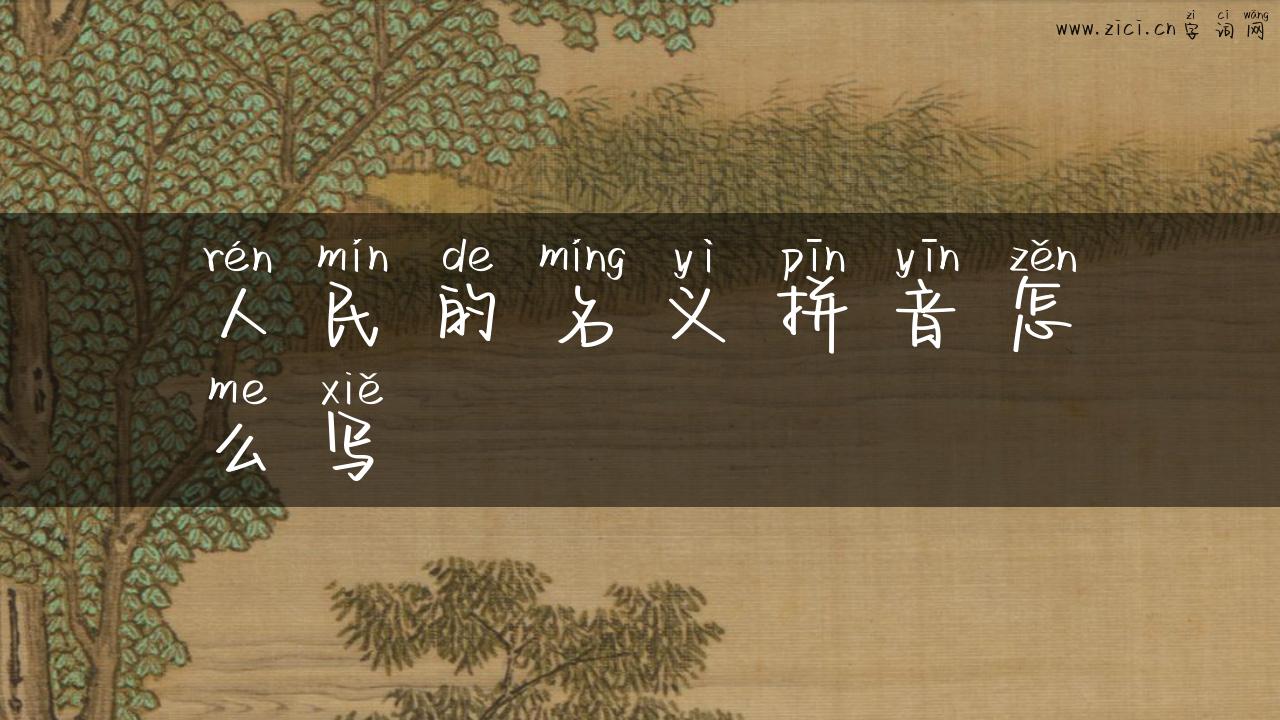 zì cí wǎng
www.zici.cn 字词网
rén mín de míng yì pīn yīn zěn
人民的名义拼音怎
me xiě
么写